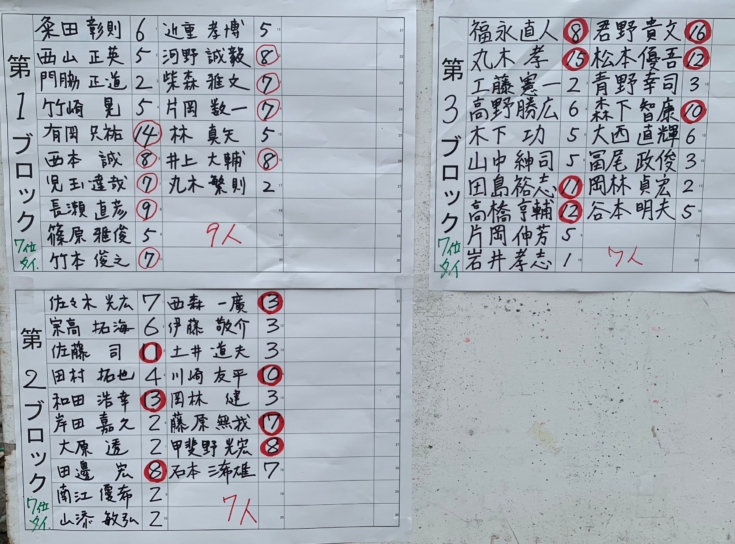 第1ブロック
7位タイ
粂田 彰則 6 近重 孝博 5
西山 正英 5 河野 誠毅 8
門脇 正道 2 柴森 雅文 7
竹崎 晃 5 片岡 敬一 7
有岡 只祐 14 林 真矢 5
西本 誠 8 井上 大輔 8
児玉 達哉 7 丸木 繁則 2
長瀬 直彦 9
篠原 雅俊 5 9人
竹本 俊之 7
第2ブロック
7位タイ
佐々木 光広 7 西森 一廣 13
宗高 拓海 6 伊藤 敬介 3
佐藤 司 11 土井 道夫 3
田村 拓也 4 川崎 友平 10
和田 浩幸 13 岡林 健 3
岸田 嘉久 2 藤原 無我 17
大原 透 2 甲斐野 光宏 8
田邊 宏 8 石本 三希雄 7
南江 優希 2
山添 敏弘 2 7人
第3ブロック
7位タイ
福永直人 8 君野貴文 16
丸木 孝 15 松本優吾 12
工藤憲一 2 青野幸司 3
高野勝広 6 森下智康 10
木下 功 5 大西直輝 6
山中紳司 5 冨尾政俊 3
田島裕志 11 岡林貞宏 2
高橋亨輔 12 谷本明夫 5
片岡伸芳 5
岩井孝志 1 7人